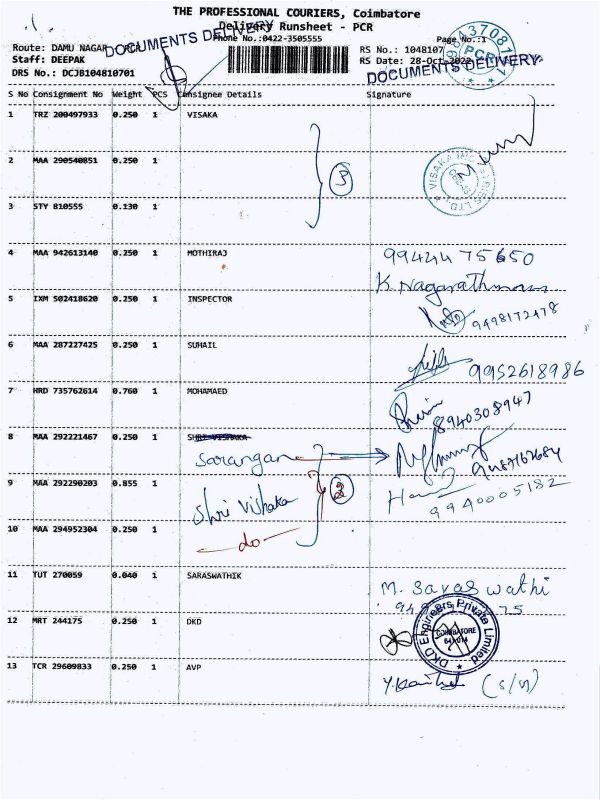 THE PROFESSIONAL COURIERS, Coimbatore
Delivery Runsheet - PCR
Phone No.:0422-3505555
Page No.:1
Route: DAMU NAGAR - PCR
RS No.: 1048107
Staff: DEEPAK
RS Date: 28-Oct-2022
DRS No.: DCJB104810701
DOCUMENTS DELIVERY
DOCUMENTS DELIVERY
PCR
S No Consignment No Weight PCS Consignee Details Signature
1 TRZ 200497933 0.250 1 VISAKA
2 MAA 290540851 0.250 1
3
VISAKA INDUSTRIES LTD.
3 STY 810555 0.130 1
4 MAA 942613140 0.250 1 MOTHIRAJ
99424 75650
K. Nagarathnam
5 IXM 502418620 0.250 1 INSPECTOR
9498172478
6 MAA 287227425 0.250 1 SUHAIL
9952618986
7 HRD 735762614 0.760 1 MOHAMAED
8940308947
8 MAA 292221467 0.250 1 SHRI VISHAKA
Sarangan
9 MAA 292290203 0.855 1
Shri Vishaka
2
9940005182
10 MAA 294952304 0.250 1
do
11 TUT 270059 0.040 1 SARASWATHIK
M. Saraswathi
12 MRT 244175 0.250 1 DKD
DKD Engineers Private Limited
COIMBATORE
641 014
13 TCR 29609833 0.250 1 AVP
(S/W)